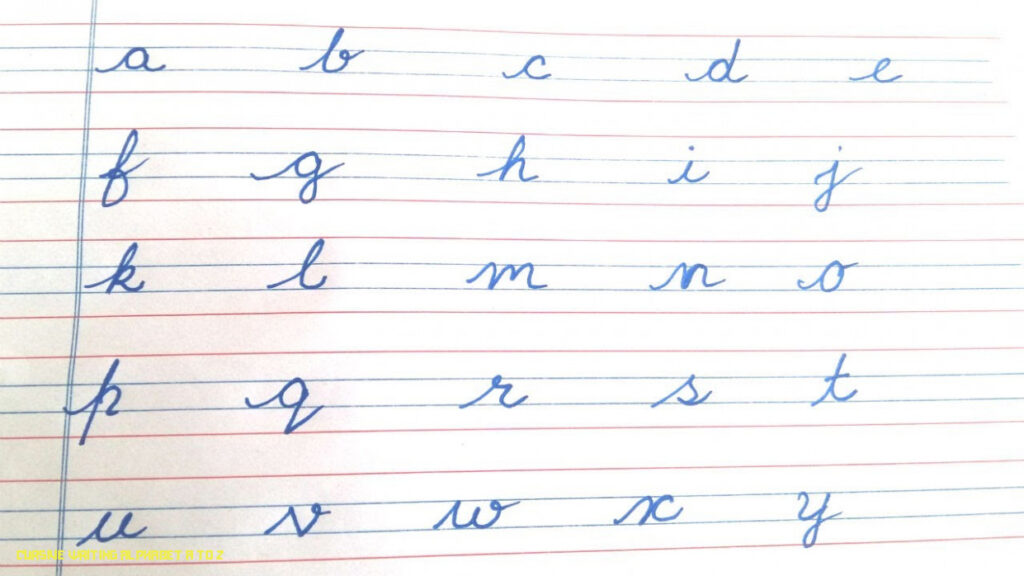 a b c d e
f g h i j
k l m n o
p q r s t
u v w x y
CURSIVE WRITING ALPHABET A TO Z